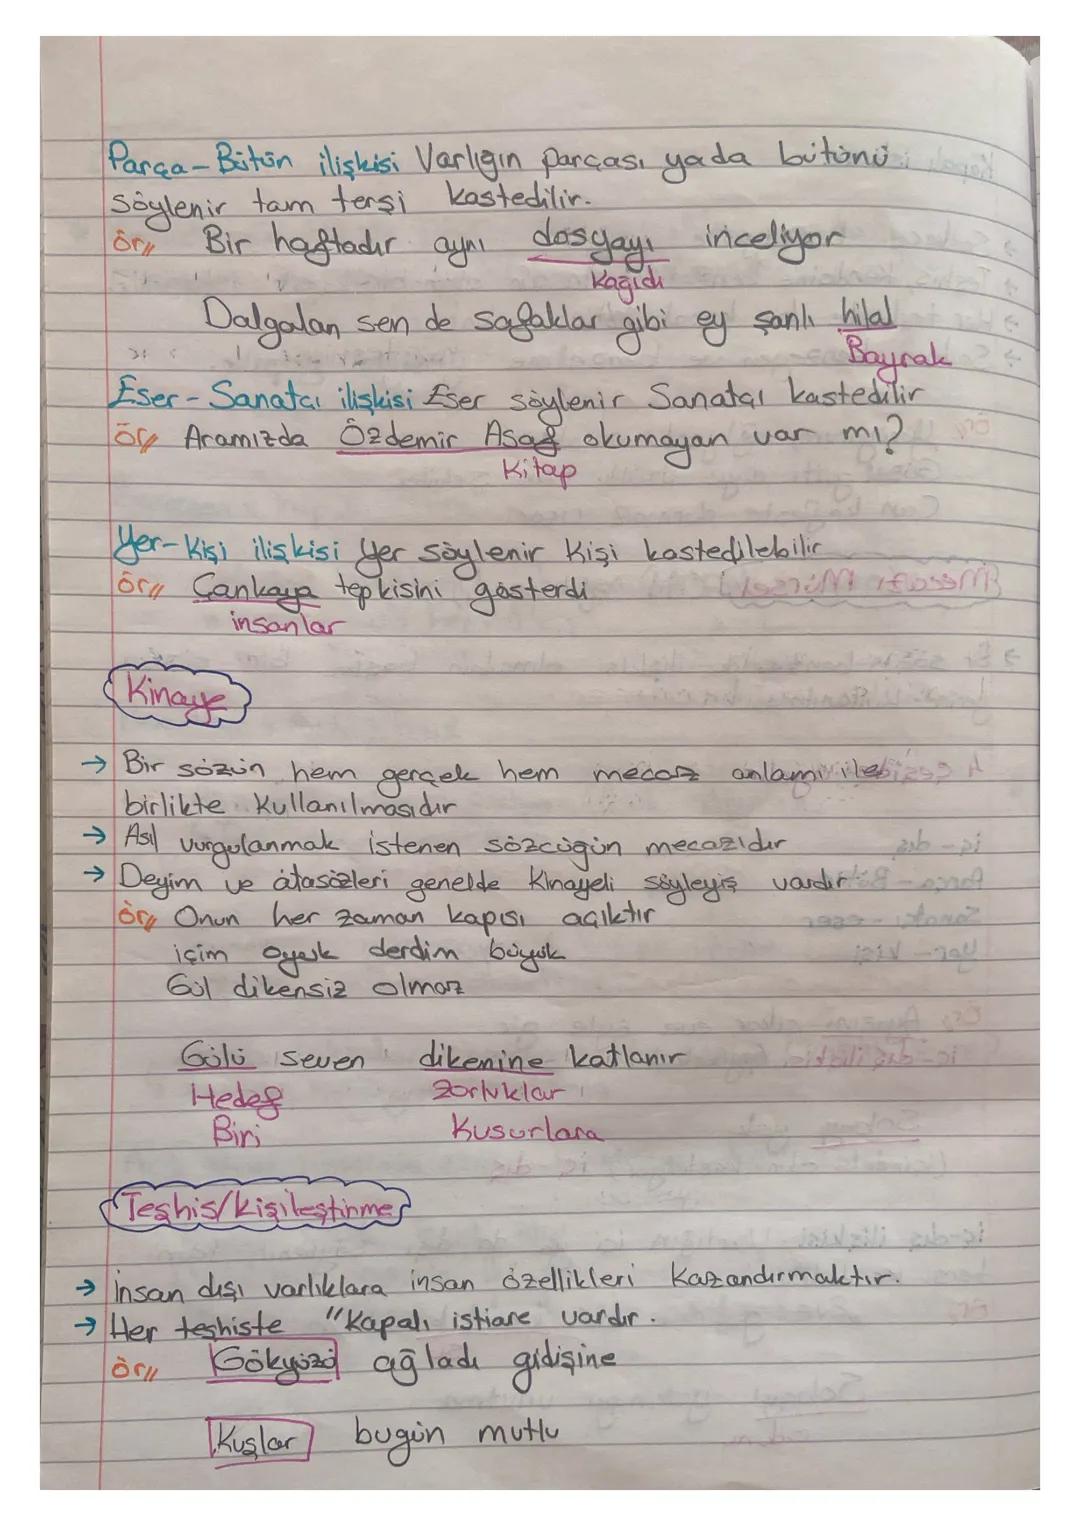 Parça-Bütün ilişkisi Varlığın parçası yada bütünü
söylenir tam tersi kastedilir.
ör// Bir haftadır aynı dosyayı inceliyor
Kağıdı
Dalgalan sen de şafaklar gibi ey şanlı hilal
Bayrak
Eser-Sanatçı ilişkisi Eser söylenir Sanatçı kastedilir
ör// Aramızda Özdemir Asaf okumayan var mı?
Kitap
Yer-Kişi ilişkisi Yer söylenir Kişi kastedilebilir
ör// Çankaya tepkisini gösterdi
insanlar
Kinaye
→ Bir sözün hem gerçek hem mecaz anlamı ile
birlikte kullanılmasıdır
→ Asıl vurgulanmak istenen sözcüğün mecazıdır
→ Deyim ve atasözleri genelde Kinayeli söyleyiş vardır
ör// Onun her zaman kapısı açıktır
içim oyuk derdim büyük
Gül dikensiz olmaz
Gülü seven dikenine katlanır
Hedef Zorluklar
Biri Kusurlara
Teşhis/kişileştirme
→ İnsan dışı varlıklara insan özellikleri Kazandırmaktır.
→ Her teşhiste "Kapalı istiare vardır.
ör// Gökyüzü ağladı gidişine
Kuşlar bugün mutlu